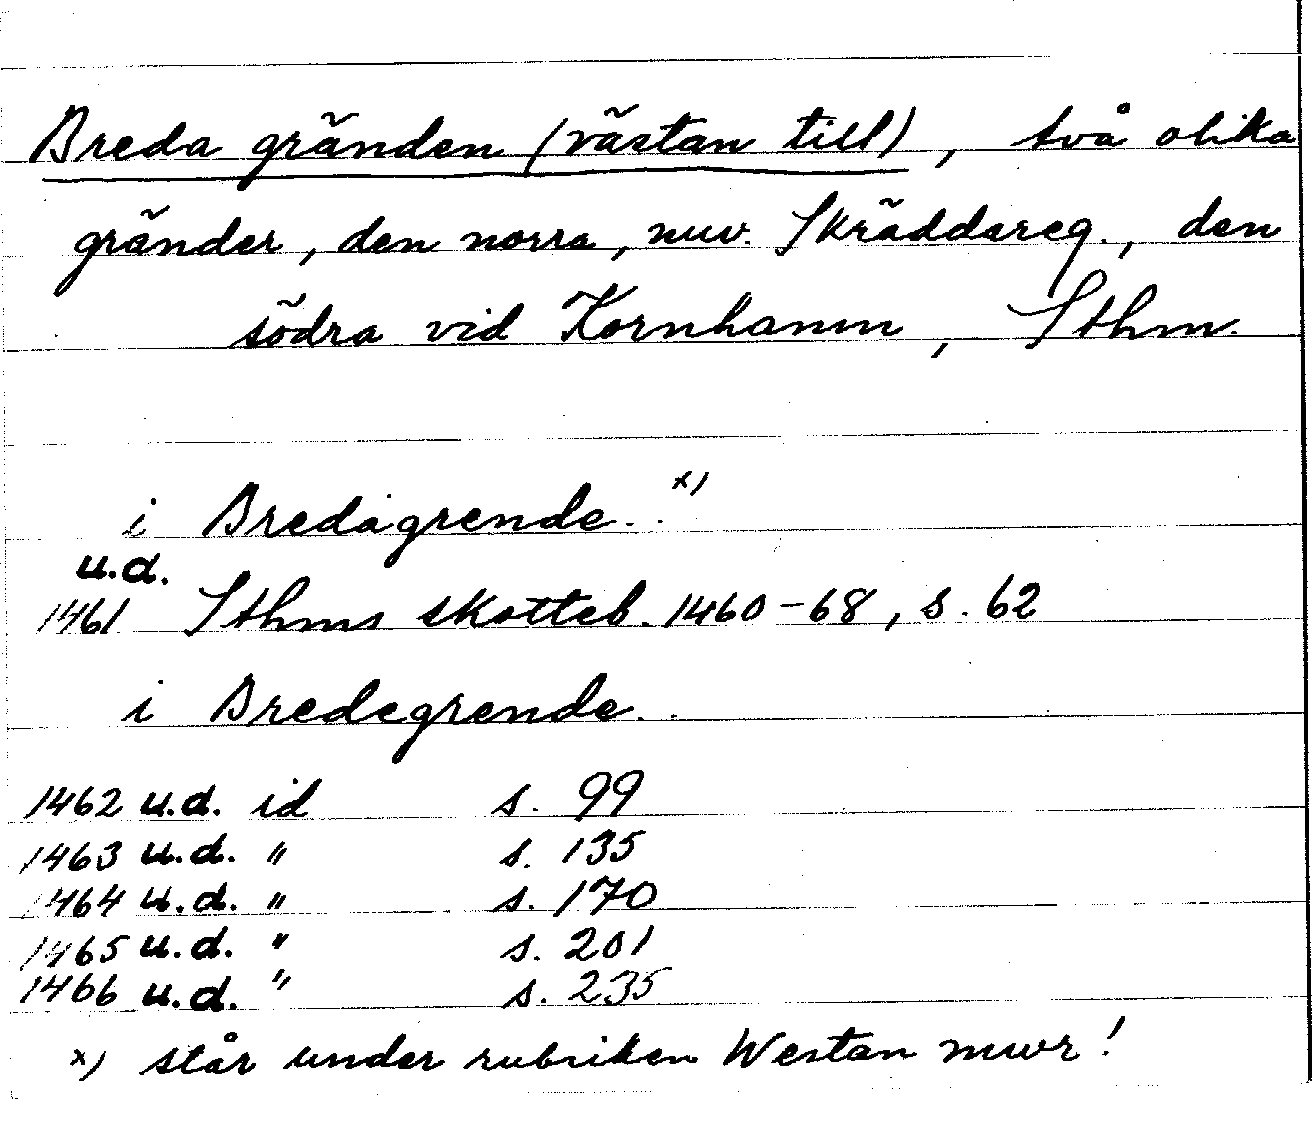 Breda gränden (västan till), två olika
gränder, den norra, nuv. Skräddareg., den
södra vid Kornhamn, Sthm.
i Bredagrende. x)
u.d.
1461 Sthms skotteb. 1460-68, s. 62
i Bredegrende.
1462 u.d. id s. 99
1463 u.d. " s. 135
1464 u.d. " s. 170
1465 u.d. " s. 201
1466 u.d. " s. 235
x) står under rubriken Westan mwr!